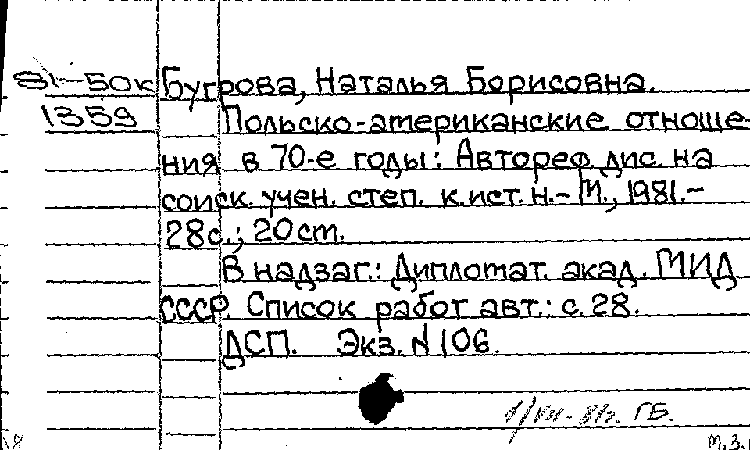 81-50к Бугрова, Наталья Борисовна.
1359 Польско-американские отноше-
ния в 70-е годы: Автореф. дис. на
соиск. учен. степ. к.ист.н.- М., 1981.-
28с.; 20 ст.
В надзаг.: Дипломат. акад. МИД
СССР. Список работ авт.: с. 28.
ДСП. Экз. N 106.
ГБ.
м.з.